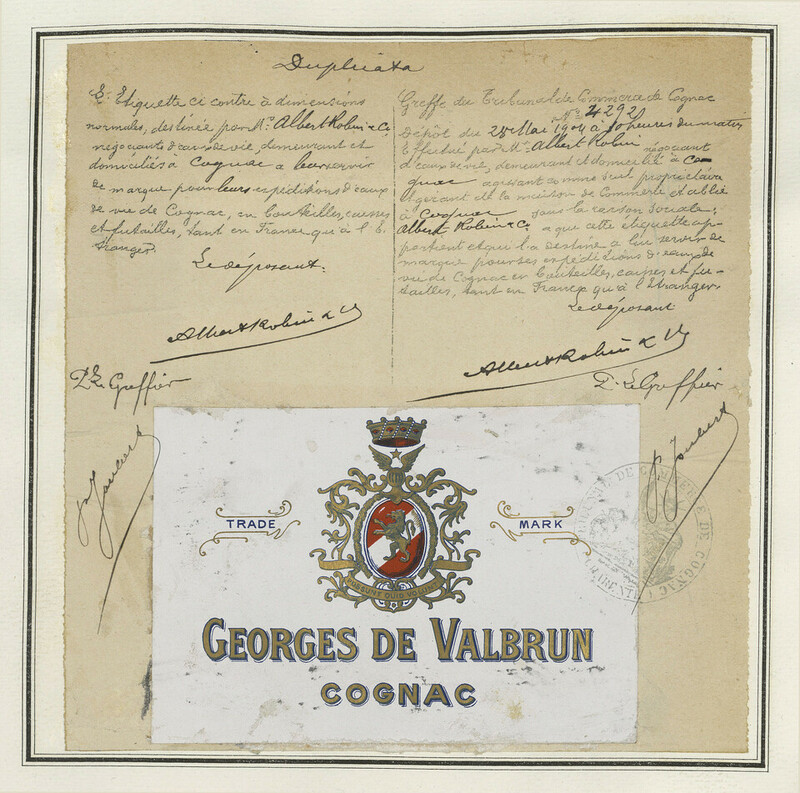 Duplicata
L'Etiquette ci contre à dimensions
normales, destinée par Mrs. Albert Robin & Co
négociants d'eaux de vie, demeurant et
domiciliés à Cognac à leur servir
de marque pour leurs expéditions d'eaux
de vie de Cognac, en bouteilles, caisses
et futailles, tant en France qu'à l'E
tranger.
Le déposant:
Albert Robin & Co
P. Le Greffier
P. Joubert
Greffe du Tribunal de Commerce de Cognac
No 4292
Dépôt du 28 Mai 1904 à 10 heures du matin
Effectué par Mr. Albert Robin négociant
d'eaux de vie, demeurant et domicilié à Co-
gnac agissant comme seul propriétaire
et gérant de la maison de Commerce établie
à Cognac sous la raison sociale:
Albert Robin & Co. a que cette étiquette ap-
partient et qui l'a destine à lui servir de
marque pour ses expéditions d'eaux de
vie de Cognac en bouteilles, caisses et fu-
tailles, tant en France qu'à l'Etranger
Le déposant
Albert Robin & Co
P. Le Greffier
P. Joubert
TRIBUNAL DE COMMERCE DE COGNAC
(CHARENTE)
TRADE MARK
POSSUNT QUID VOLUNT
GEORGES DE VALBRUN
COGNAC